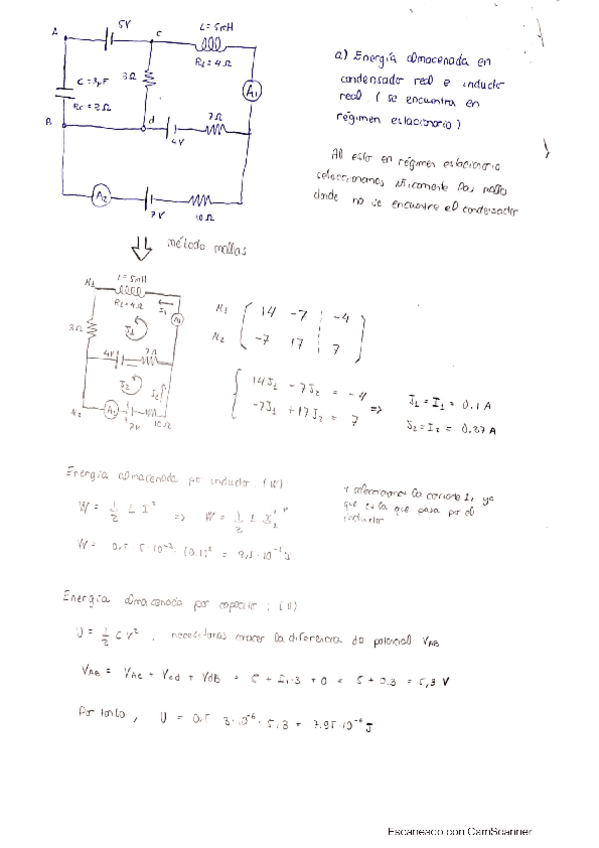 A
5V
c
L = 5mH
RL = 4Ω
3Ω
C = 3μF
Rc = 2Ω
A1
B
d
4V
7Ω
A2
7V
10Ω
a) Energía almacenada en
condensador real e inductor
real. (se encuentra en
régimen estacionario)
Al estar en régimen estacionario
seleccionamos únicamente las mallas
donde no se encuentre el condensador
método mallas
L = 5mH
RL = 4Ω
I1
J1
3Ω
4V
7Ω
J2
I2
7V
10Ω
14 -7 -4
-7 17 7
14J1 - 7J2 = -4
-7J1 + 17J2 = 7
=> J1 = I1 = 0.1 A
J2 = I2 = 0.37 A
Energía almacenada por inductor: (W)
W = 1/2 L I² => W = 1/2 L I1²
W = 0,5 · 5·10⁻³ · (0.1)² =
* seleccionamos la corriente I1 ya
que es la que pasa por el
inductor
Energía almacenada por capacitor: (U)
U = 1/2 C V², necesitamos conocer la diferencia de potencial VAB
VAB = VAc + Vcd + VdB = 5 + I1·3 + 0 = 5 + 0.3 = 5,3 V
Por tanto, U = 0,5 · 3·10⁻⁶ · 5,3 = 7.95·10⁻⁶ J
Escaneado con CamScanner